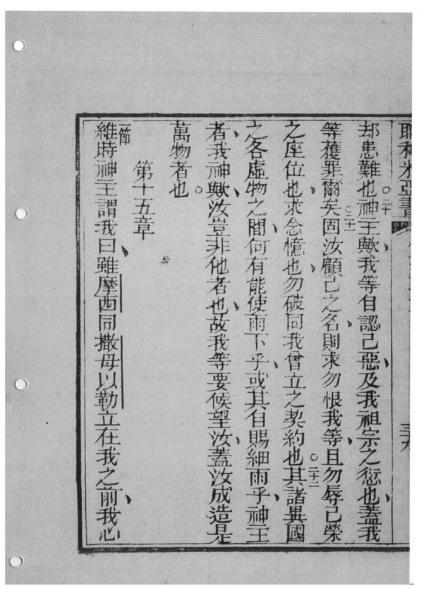 耶利米亞書
却患難也○二十神王歟我等自認己惡及我祖宗之愆也蓋我
等獲罪爾矣○二十一因汝顧己之名則求勿恨我等且勿辱己榮
之座位也求念憶也勿破向我曾立之契約也○二十二其諸異國
之各虛物之間何有能使雨下乎或其自賜細雨乎神王
者我神歟汝豈非他者也故我等要候望汝蓋汝成造是
萬物者也
第十五章
一節維時神王謂我曰雖摩西同撒母以勒立在我之前我心